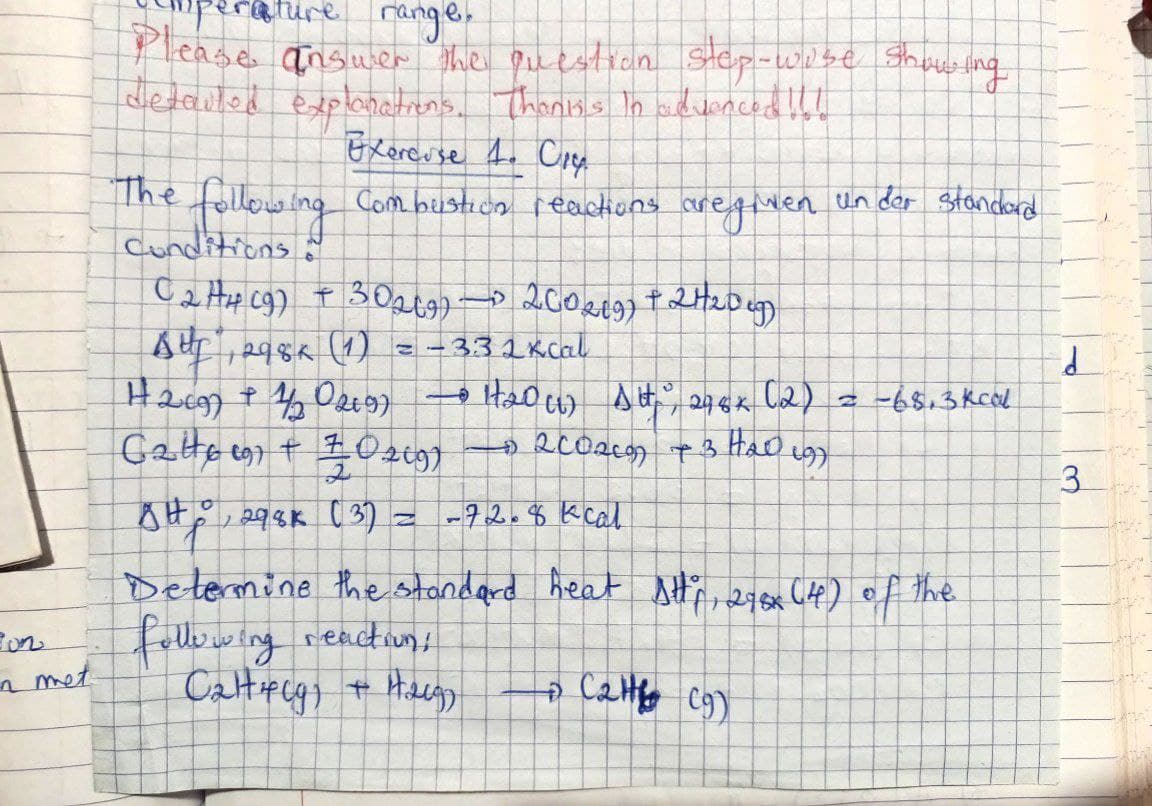 temperature range.
Please answer the question step-wise showing
detailed explanations. Thanks in advanced!!!
Exercise 1. C14.
The following Combustion reactions are given under standard
Conditions:
C2H4(g) + 3O2(g) → 2CO2(g) + 2H2O(g)
ΔHr°, 298K (1) = -332 kcal
H2(g) + 1/2 O2(g) → H2O(l) ΔHr°, 298K (2) = -68.3 kcal
C2H6(g) + 7/2 O2(g) → 2CO2(g) + 3H2O(g)
ΔHr°, 298K (3) = -72.8 kcal
d
3
Determine the standard heat ΔHr°, 298K (4) of the
following reaction:
ion
C2H4(g) + H2(g) → C2H6 (g)
n met